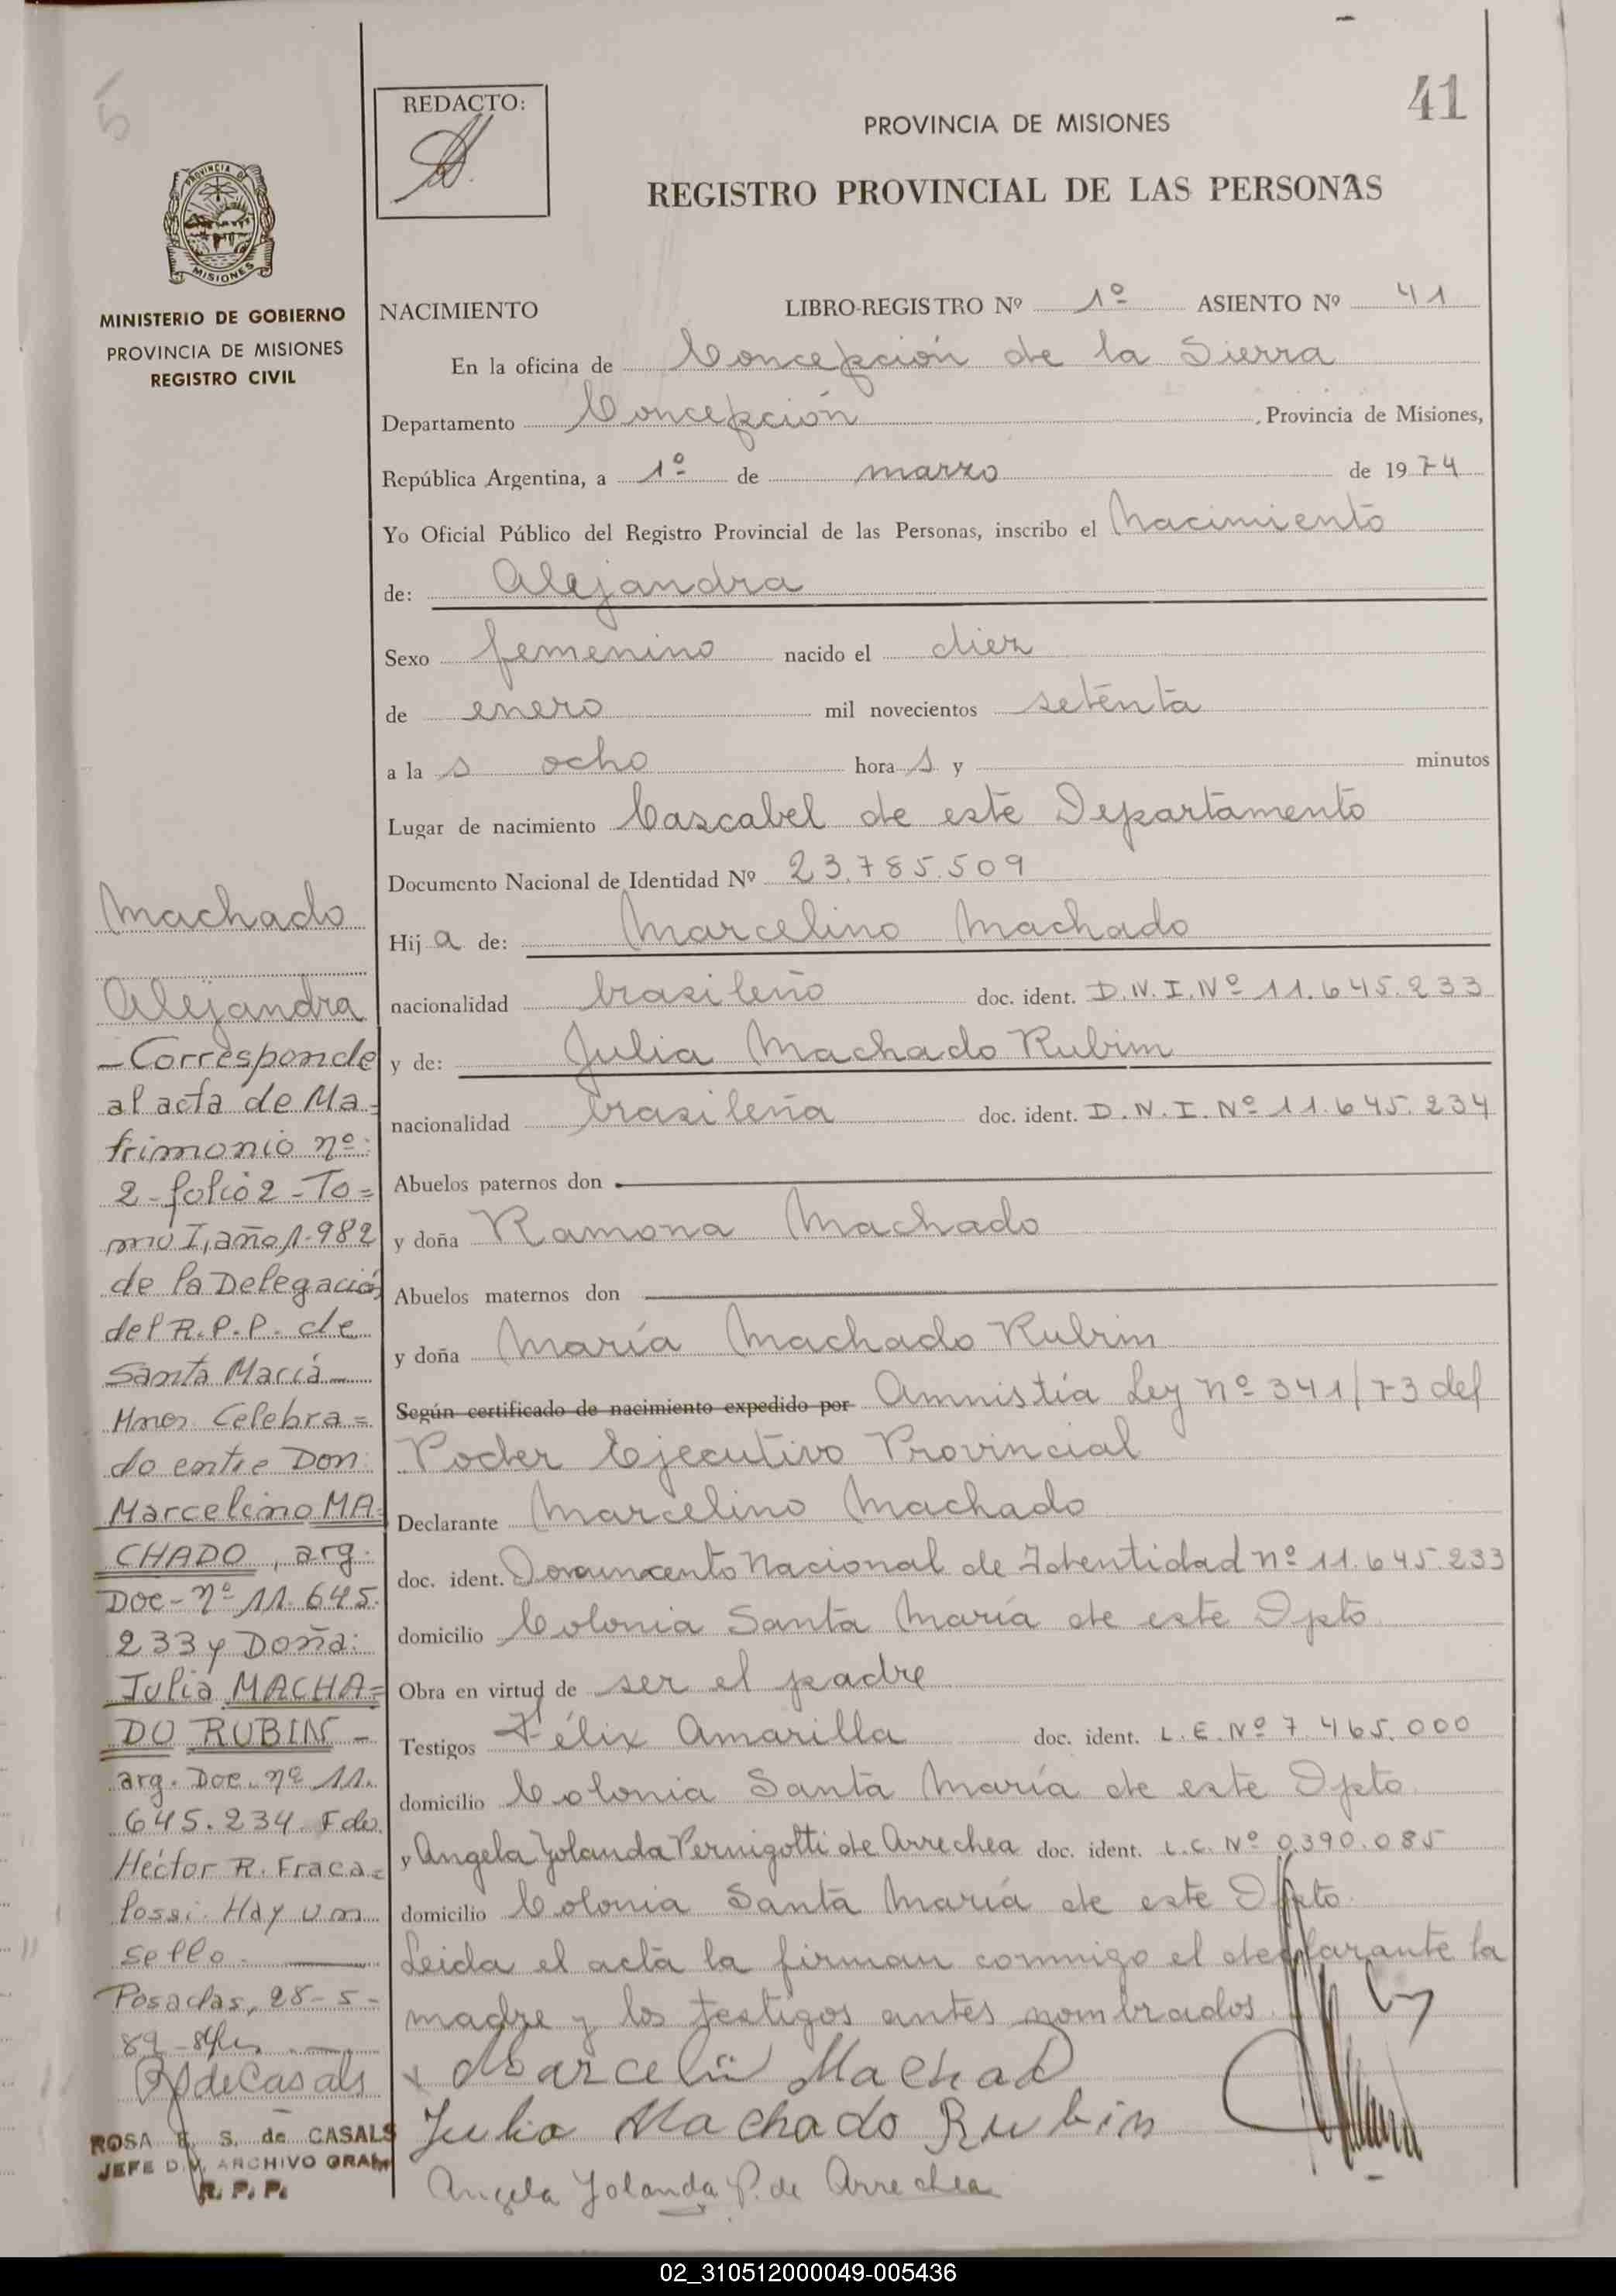 5
REDACTO:
41
PROVINCIA DE MISIONES
REGISTRO PROVINCIAL DE LAS PERSONAS
PROVINCIA DE
MISIONES
MINISTERIO DE GOBIERNO
PROVINCIA DE MISIONES
REGISTRO CIVIL
NACIMIENTO LIBRO-REGISTRO Nº 1º ASIENTO Nº 41
En la oficina de Concepción de la Sierra
Departamento Concepción, Provincia de Misiones,
República Argentina, a 1º de marzo de 1974
Yo Oficial Público del Registro Provincial de las Personas, inscribo el Nacimiento
de: Alejandra
Sexo femenino nacido el diez
de enero mil novecientos setenta
a la s ocho hora s y minutos
Lugar de nacimiento Cascabel de este Departamento
Documento Nacional de Identidad Nº 23.785.509
Hij a de: Marcelino Machado
nacionalidad brasileño doc. ident. D.N.I. Nº 11.645.233
y de: Julia Machado Rubim
nacionalidad brasileña doc. ident. D.N.I. Nº 11.645.234
Abuelos paternos don
y doña Ramona Machado
Abuelos maternos don
y doña María Machado Rubim
Según certificado de nacimiento expedido por Amnistía Ley nº 341/73 del
Poder Ejecutivo Provincial
Declarante Marcelino Machado
doc. ident. Documento Nacional de Identidad nº 11.645.233
domicilio Colonia Santa María de este Dpto
Obra en virtud de ser el padre
Testigos Félix Amarilla doc. ident. L.E. Nº 7.465.000
domicilio Colonia Santa María de este Dpto
y Angela Yolanda Pernigotti de Arrechea doc. ident. L.C. Nº 0.390.085
domicilio Colonia Santa María de este Dpto
Leida el acta la firman conmigo el declarante la
madre y los testigos antes nombrados
x Marcelin Machad
Julia Machado Rubin
Angela Yolanda P. de Arrechea
Machado
Alejandra
-Corresponde
al acta de Ma=
trimonio nº:
2-folio 2-To=
mo I, año 1.982
de la Delegación
del R.P.P. de
Santa María
Mnes. Celebra=
do entre Don:
Marcelino MA=
CHADO, arg.
Doc-nº 11.645.
233 y Doña:
Julia MACHA=
DO RUBIN -
arg. Doc. nº 11.
645.234 Fdo.
Héctor R. Fraca=
Possi. Hay un
sello.
Posadas, 28-5-
89
deCasals
ROSA E. S. de CASALS
JEFE DIV. ARCHIVO GRAL.
R. P. P.
02_310512000049-005436